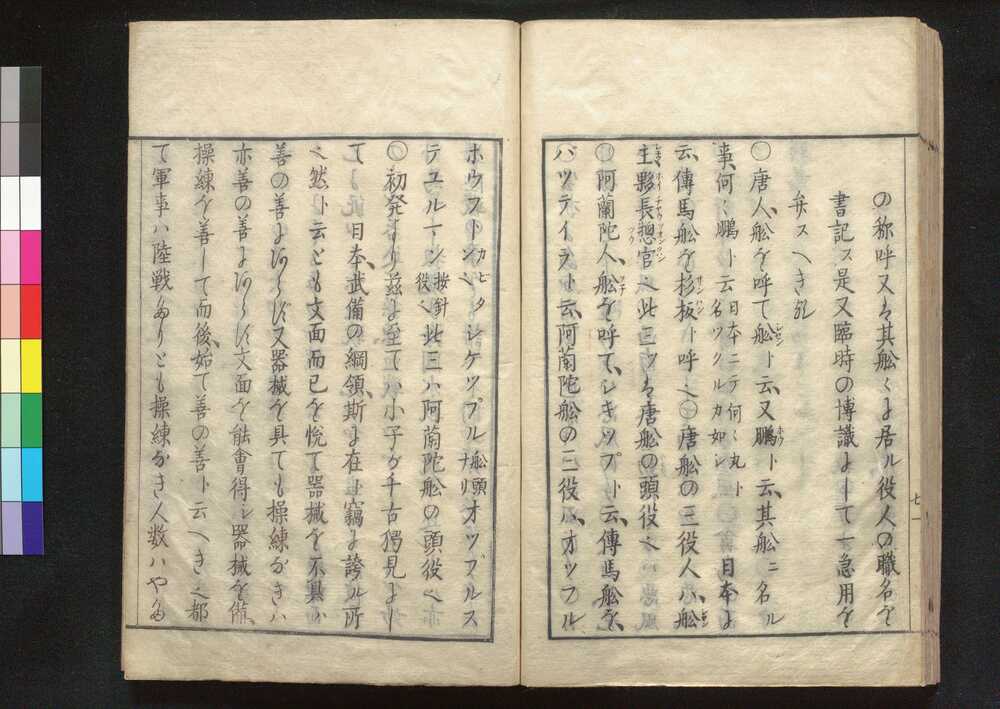 の称呼又ハ其舩〻に居ル役人の職名を
書記ス是又臨時の博識にして一急用を
弁スへき歟
○唐人、舩を呼て舩ト云、又鵬ト云、其舩ニ名ル
事、何〻鵬ト云日本ニテ何〻丸ト名ツクルカ如シ日本に
云、傳馬舩を杉板ト呼〻○唐舩の三役人ハ、舩
主、夥長、揔官〻此三ツハ唐舩の頭役〻
○阿蘭陀人、舩を呼て、シキツプト云、傳馬舩を、
バツテイラト云、阿蘭陀舩の三役ハ、オツフル
ホウフトン、カビタン シケツプル舩頭ナリオツプルス
テユルマン按針役〻此三ハ阿蘭陀舩の頭役〻
○初発より茲に至てハ小子が千古獨見にし
て日本武備の綱領、斯に在ト竊に誇ル所
〻然ト云とも文面而已を悦て器械を不具ハ
善の善にあらす又器械を具ても操練なきハ
亦善の善にあらす文面を能會得シ器械を備、
操練を善して而後、始て善の善ト云へき〻都
て軍事ハ陸戦なりとも操練なき人数ハやた
七一